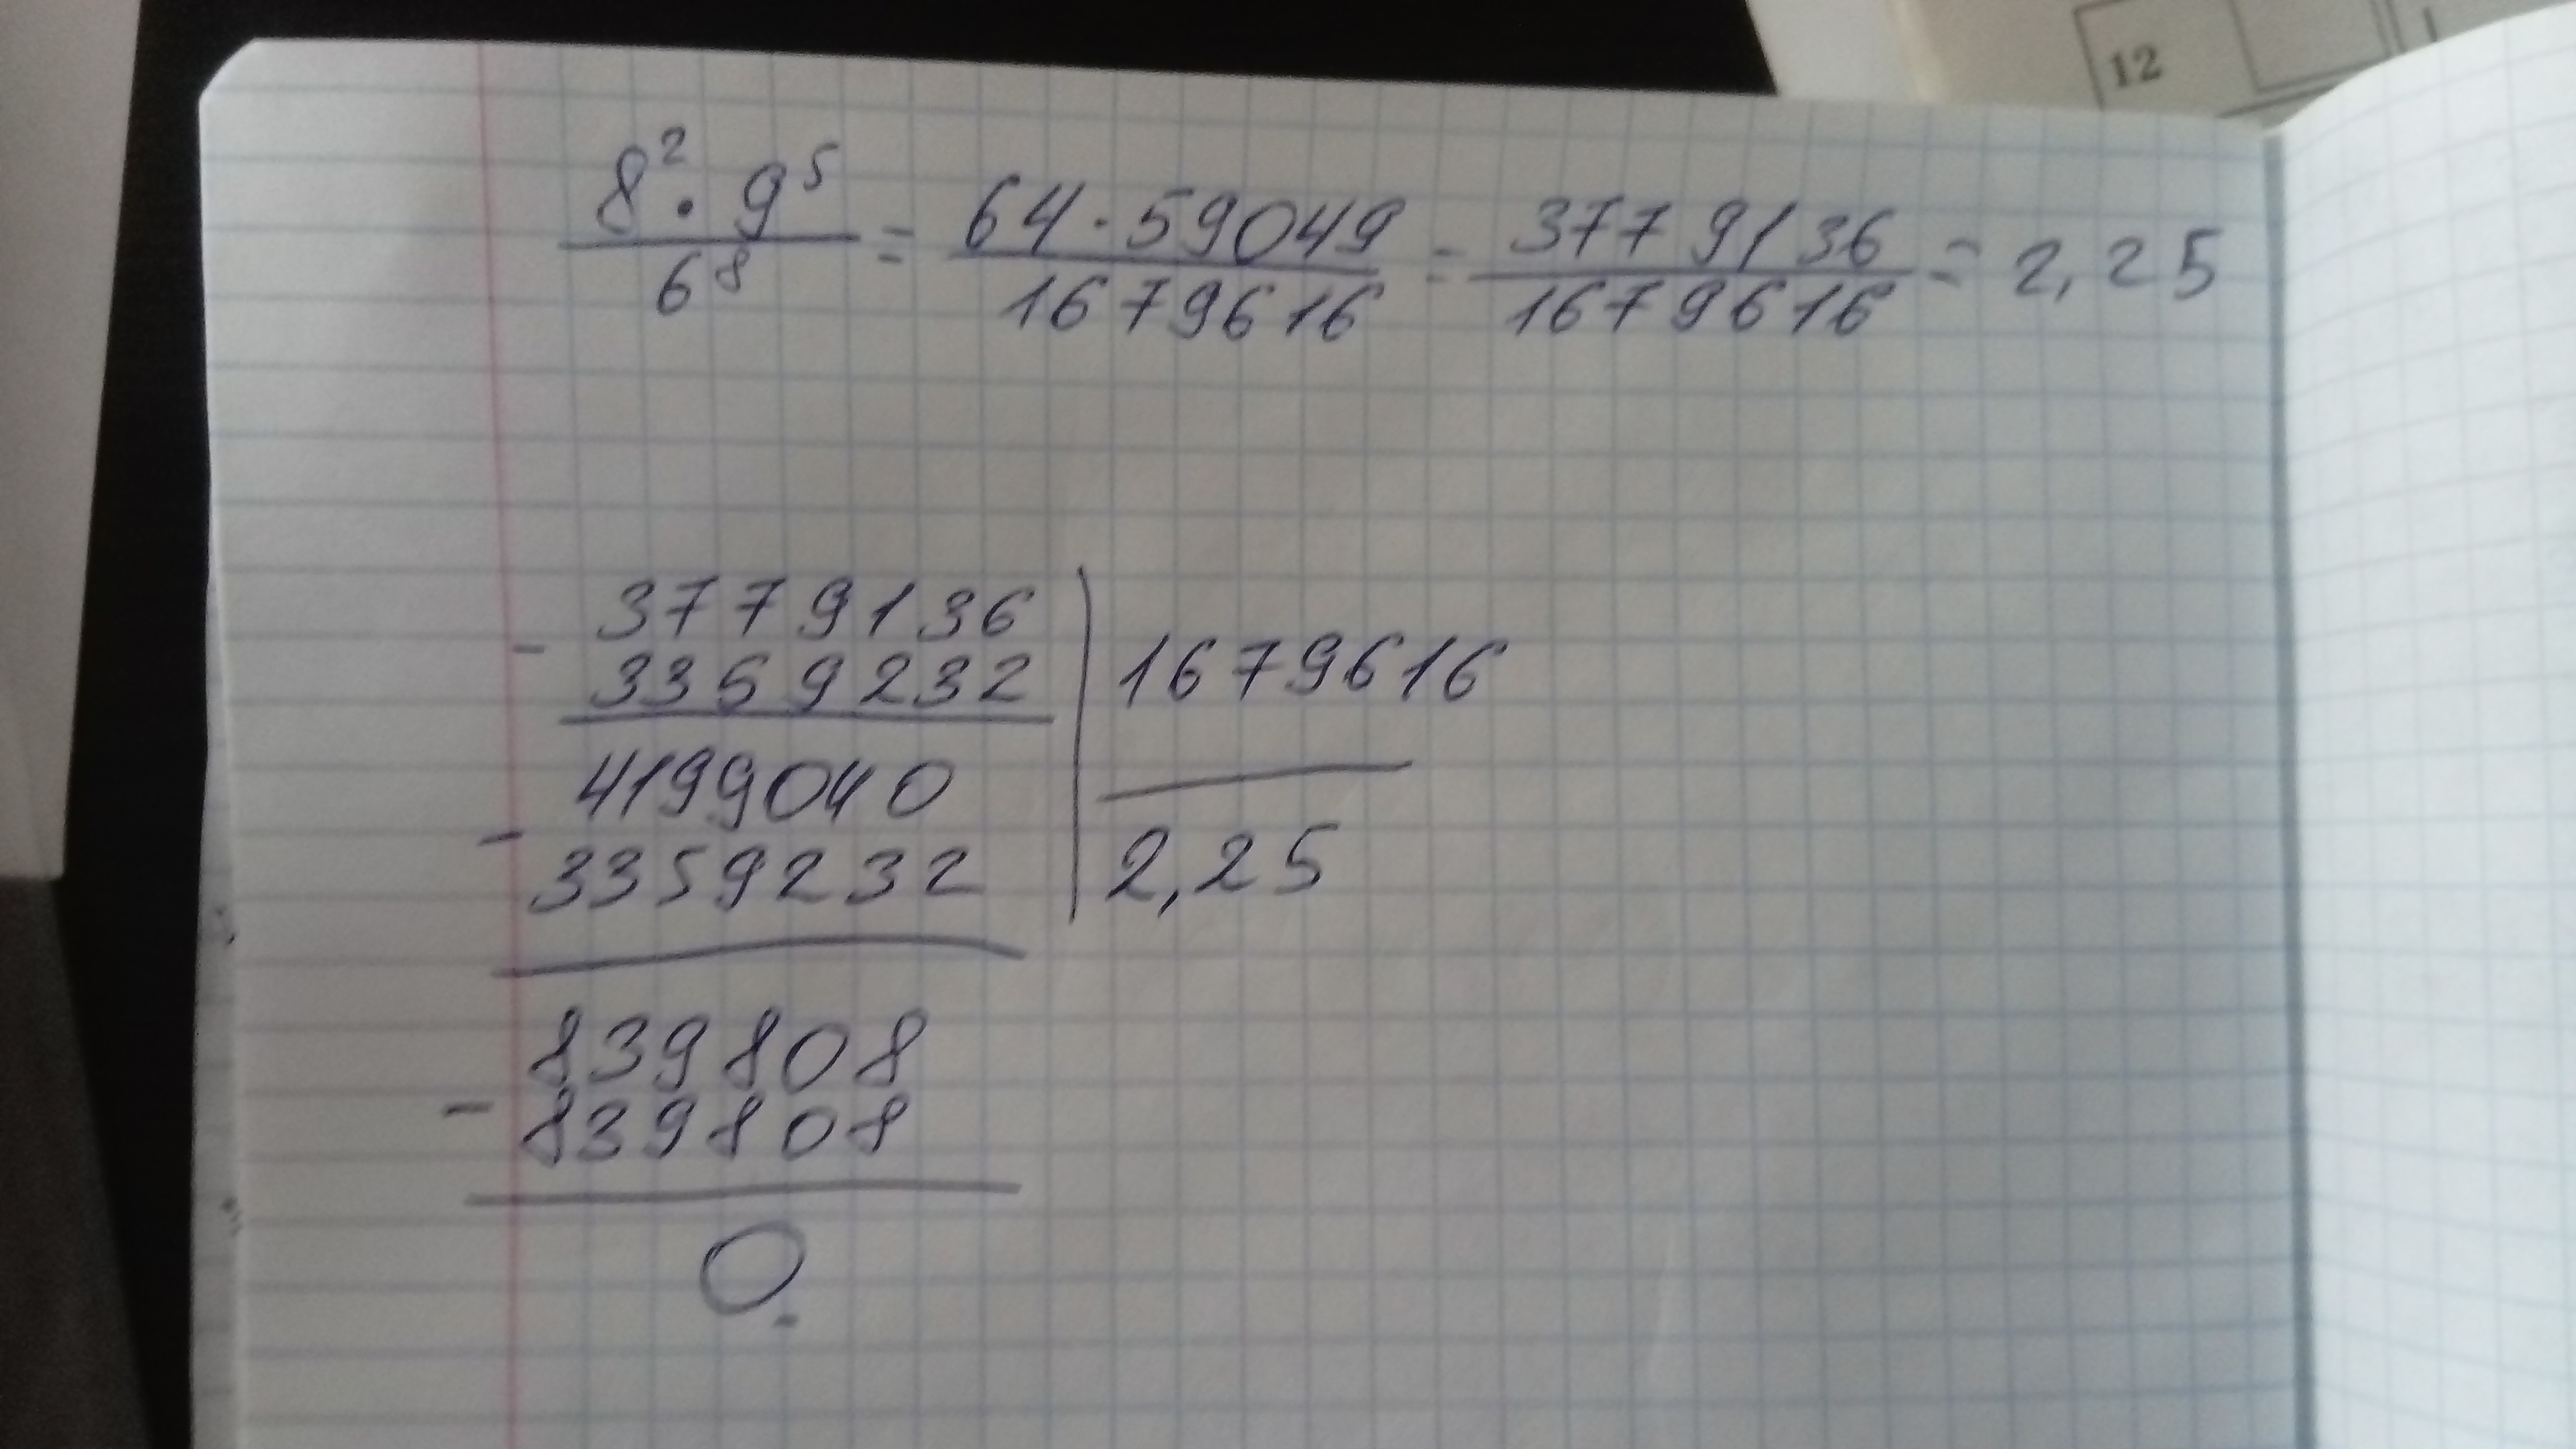 12
8² · 9⁵ / 6⁸ = 64 · 59049 / 1679616 = 3779136 / 1679616 = 2,25
- 3779136 | 1679616
3359232
4199040 | 2,25
- 3359232
839808
- 839808
0.